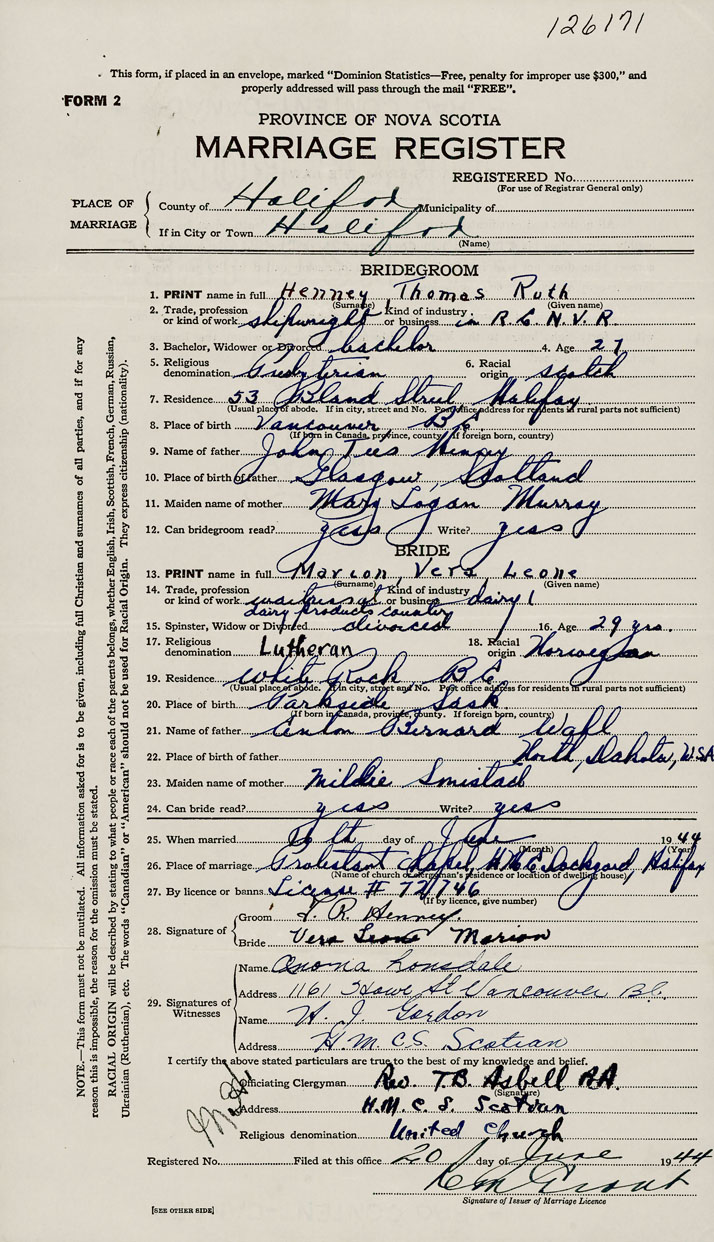 126171
This form, if placed in an envelope, marked "Dominion Statistics—Free, penalty for improper use $300," and
properly addressed will pass through the mail "FREE".
FORM 2
PROVINCE OF NOVA SCOTIA
MARRIAGE REGISTER
REGISTERED No.
(For use of Registrar General only)
PLACE OF MARRIAGE
County of Halifax Municipality of
If in City or Town Halifax
(Name)
BRIDEGROOM
1. PRINT name in full Henney Thomas Ruth
(Surname) (Given name)
2. Trade, profession or kind of work shipwright Kind of industry or business in R.C.N.V.R
3. Bachelor, Widower or Divorced bachelor 4. Age 27
5. Religious denomination Presbyterian 6. Racial origin scotch
7. Residence 53 Bland Street, Halifax
(Usual place of abode. If in city, street and No. Post office address for residents in rural parts not sufficient)
8. Place of birth Vancouver B.C.
(If born in Canada, province, county. If foreign born, country)
9. Name of father John Tees Henney
10. Place of birth of father Glasgow, Scotland
11. Maiden name of mother Mary Logan Murray
12. Can bridegroom read? yess Write? yess
BRIDE
13. PRINT name in full Marion, Vera Leone
(Surname) (Given name)
14. Trade, profession or kind of work waitress at Kind of industry or business dairy
dairy products counter
15. Spinster, Widow or Divorced divorced 16. Age 29 yrs.
17. Religious denomination Lutheran 18. Racial origin Norwegian
19. Residence White Rock, B.C.
(Usual place of abode. If in city, street and No. Post office address for residents in rural parts not sufficient)
20. Place of birth Parkside Sask.
(If born in Canada, province, county. If foreign born, country)
21. Name of father Anton Bernard Wahl
22. Place of birth of father North, Dakota, USA
23. Maiden name of mother Millie Smistad
24. Can bride read? yess Write? yess
25. When married day of June 1944
(Month) (Year)
26. Place of marriage Protestant Chapel, H.M.C. Dockyard, Halifax
(Name of church or clergyman's residence or location of dwelling house)
27. By licence or banns License # 72746
(If by licence, give number)
28. Signature of
Groom T. R. Henney
Bride Vera Leone Marion
29. Signatures of Witnesses
Name Lonsdale
Address 1161 Howe St Vancouver B.C.
Name W. J. Gordon
Address H.M.C.S. Scotian
I certify the above stated particulars are true to the best of my knowledge and belief.
Officiating Clergyman Rev T.B. Asbell
(Signature)
Address H.M.C.S. Scotian
Religious denomination United Church
Registered No. Filed at this office 20 day of June 1944
Grant
Signature of Issuer of Marriage Licence
[SEE OTHER SIDE]
NOTE.—This form must not be mutilated. All information asked for is to be given, including full Christian and surnames of all parties, and if for any
reason this is impossible, the reason for the omission must be stated.
RACIAL ORIGIN will be described by stating to what people or race each of the parents belongs, whether English, Irish, Scottish, French, German, Russian,
Ukrainian (Ruthenian), etc. The words "Canadian" or "American" should not be used for Racial Origin. They express citizenship (nationality).